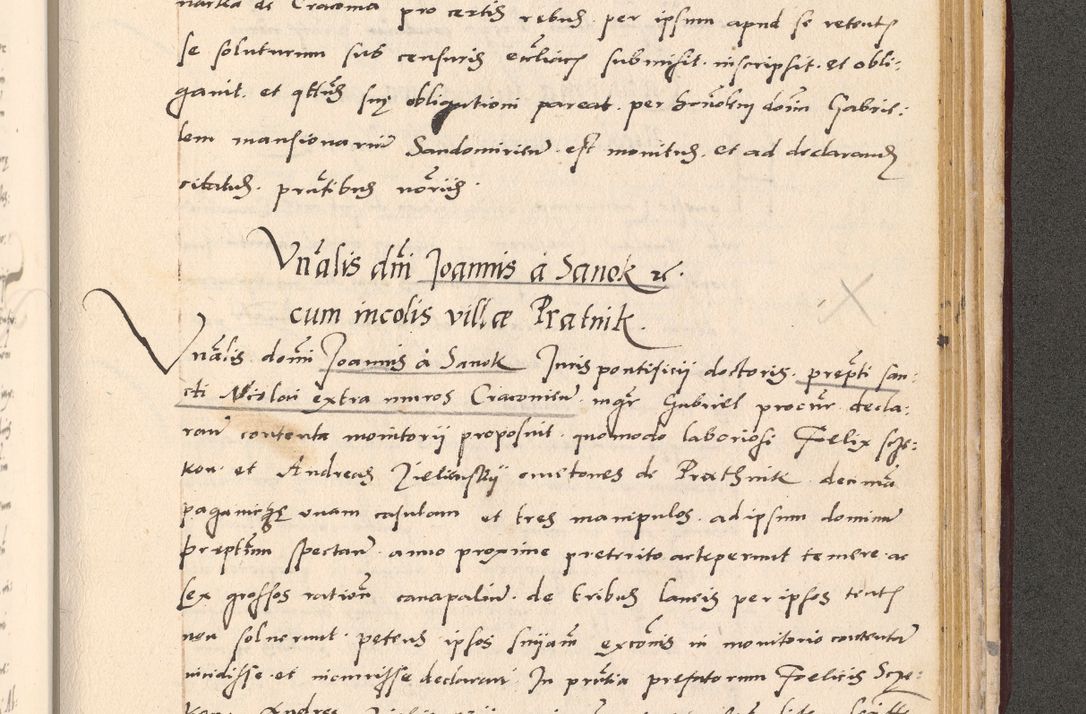 de Cracovia pro certis rebus per ipsum apud se retentis
se soluturum sub censuris eccliticis submisit inscripsit et obli:
gavit et qttus suę obligationi pareat per honolem domi Gabrie:
lem mansionariu Sandomirien est monitus et ad declarandu
citatus prntibus noriis
Vnalis dni Joannis a Sanok zc.
cum incolis villæ Pratnik.
Vnalis domi Joannis a Sanok Juris pontificii doctoris prepti san:
cti Nicolai extra muros Cracovien mgr Gabriel procur decla:
rau contenta monitorii proposuit quomodo laboriosi Foelix scze:
kon et Andreas Zielinskii cmetones de Prathnik decima
paganiczę unam casulam et tres manipulos ad ipsum dominu
preptum spectan anno proxime preterito acceperunt temere ac
sex grossos ration canapaliu de tribus laneis per ipsos tentis
non soluerunt petens ipsos sniam excois in monitorio contentu
incidisse et incurrisse declarari In prntia prefatorum Foelicis Scze: